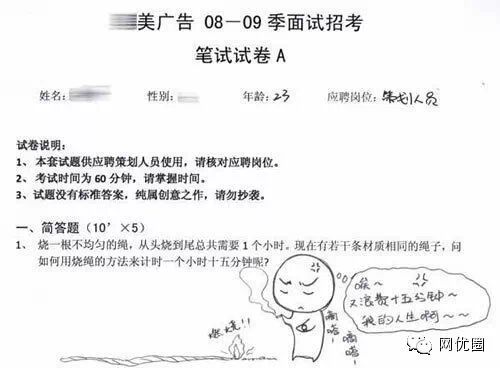 美广告 08－09 季面试招考
笔试试卷 A
姓名： 性别： 年龄：23 应聘岗位：策划人员
试卷说明：
1、 本套试题供应聘策划人员使用，请核对应聘岗位。
2、 考试时间为 60 分钟，请掌握时间。
3、 试题没有标准答案，纯属创意之作，请勿抄袭。
一、简答题（10’×5）
1、 烧一根不均匀的绳，从头烧到尾总共需要 1 个小时。现在有若干条材质相同的绳子，问
如何用烧绳的方法来计时一个小时十五分钟呢？
唉～
又浪费十五分钟～
我的人生啊～～
燃烧!!
嘀嗒
嘀嗒～
网优圈